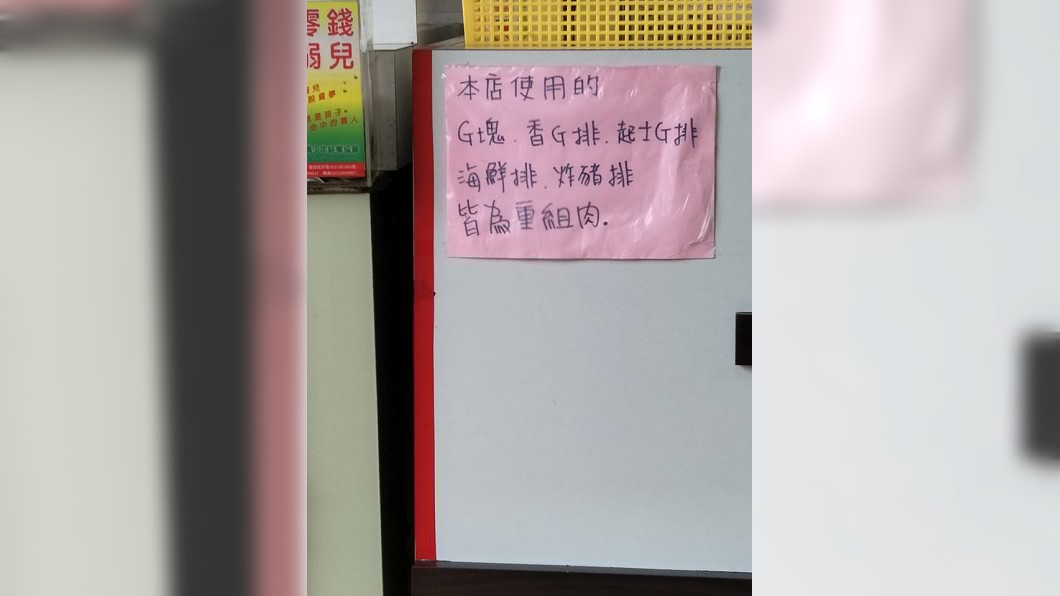 零錢
弱兒
本店使用的
G塊.香G排.起士G排
海鮮排.炸豬排
皆為重組肉.